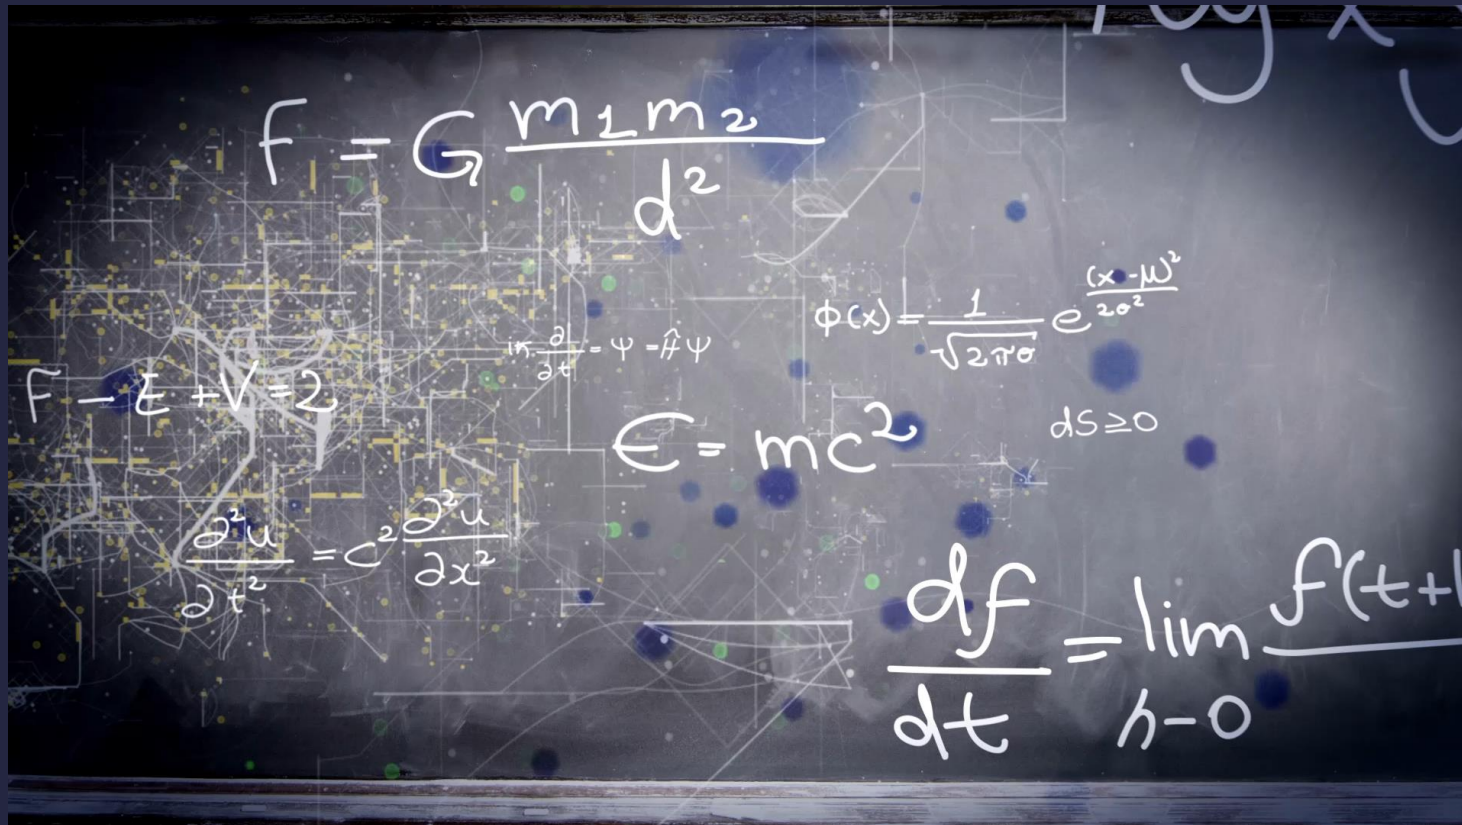 log x y
F = G m1m2 / d²
ϕ(x) = 1 / √2πσ e (x-μ)² / 2σ²
iħ ∂/∂t = Ψ = ĤΨ
F - E + V = 2
E = mc²
dS ≥ 0
∂²u / ∂t² = c² ∂²u / ∂x²
df / dt = lim h-0 f(t+